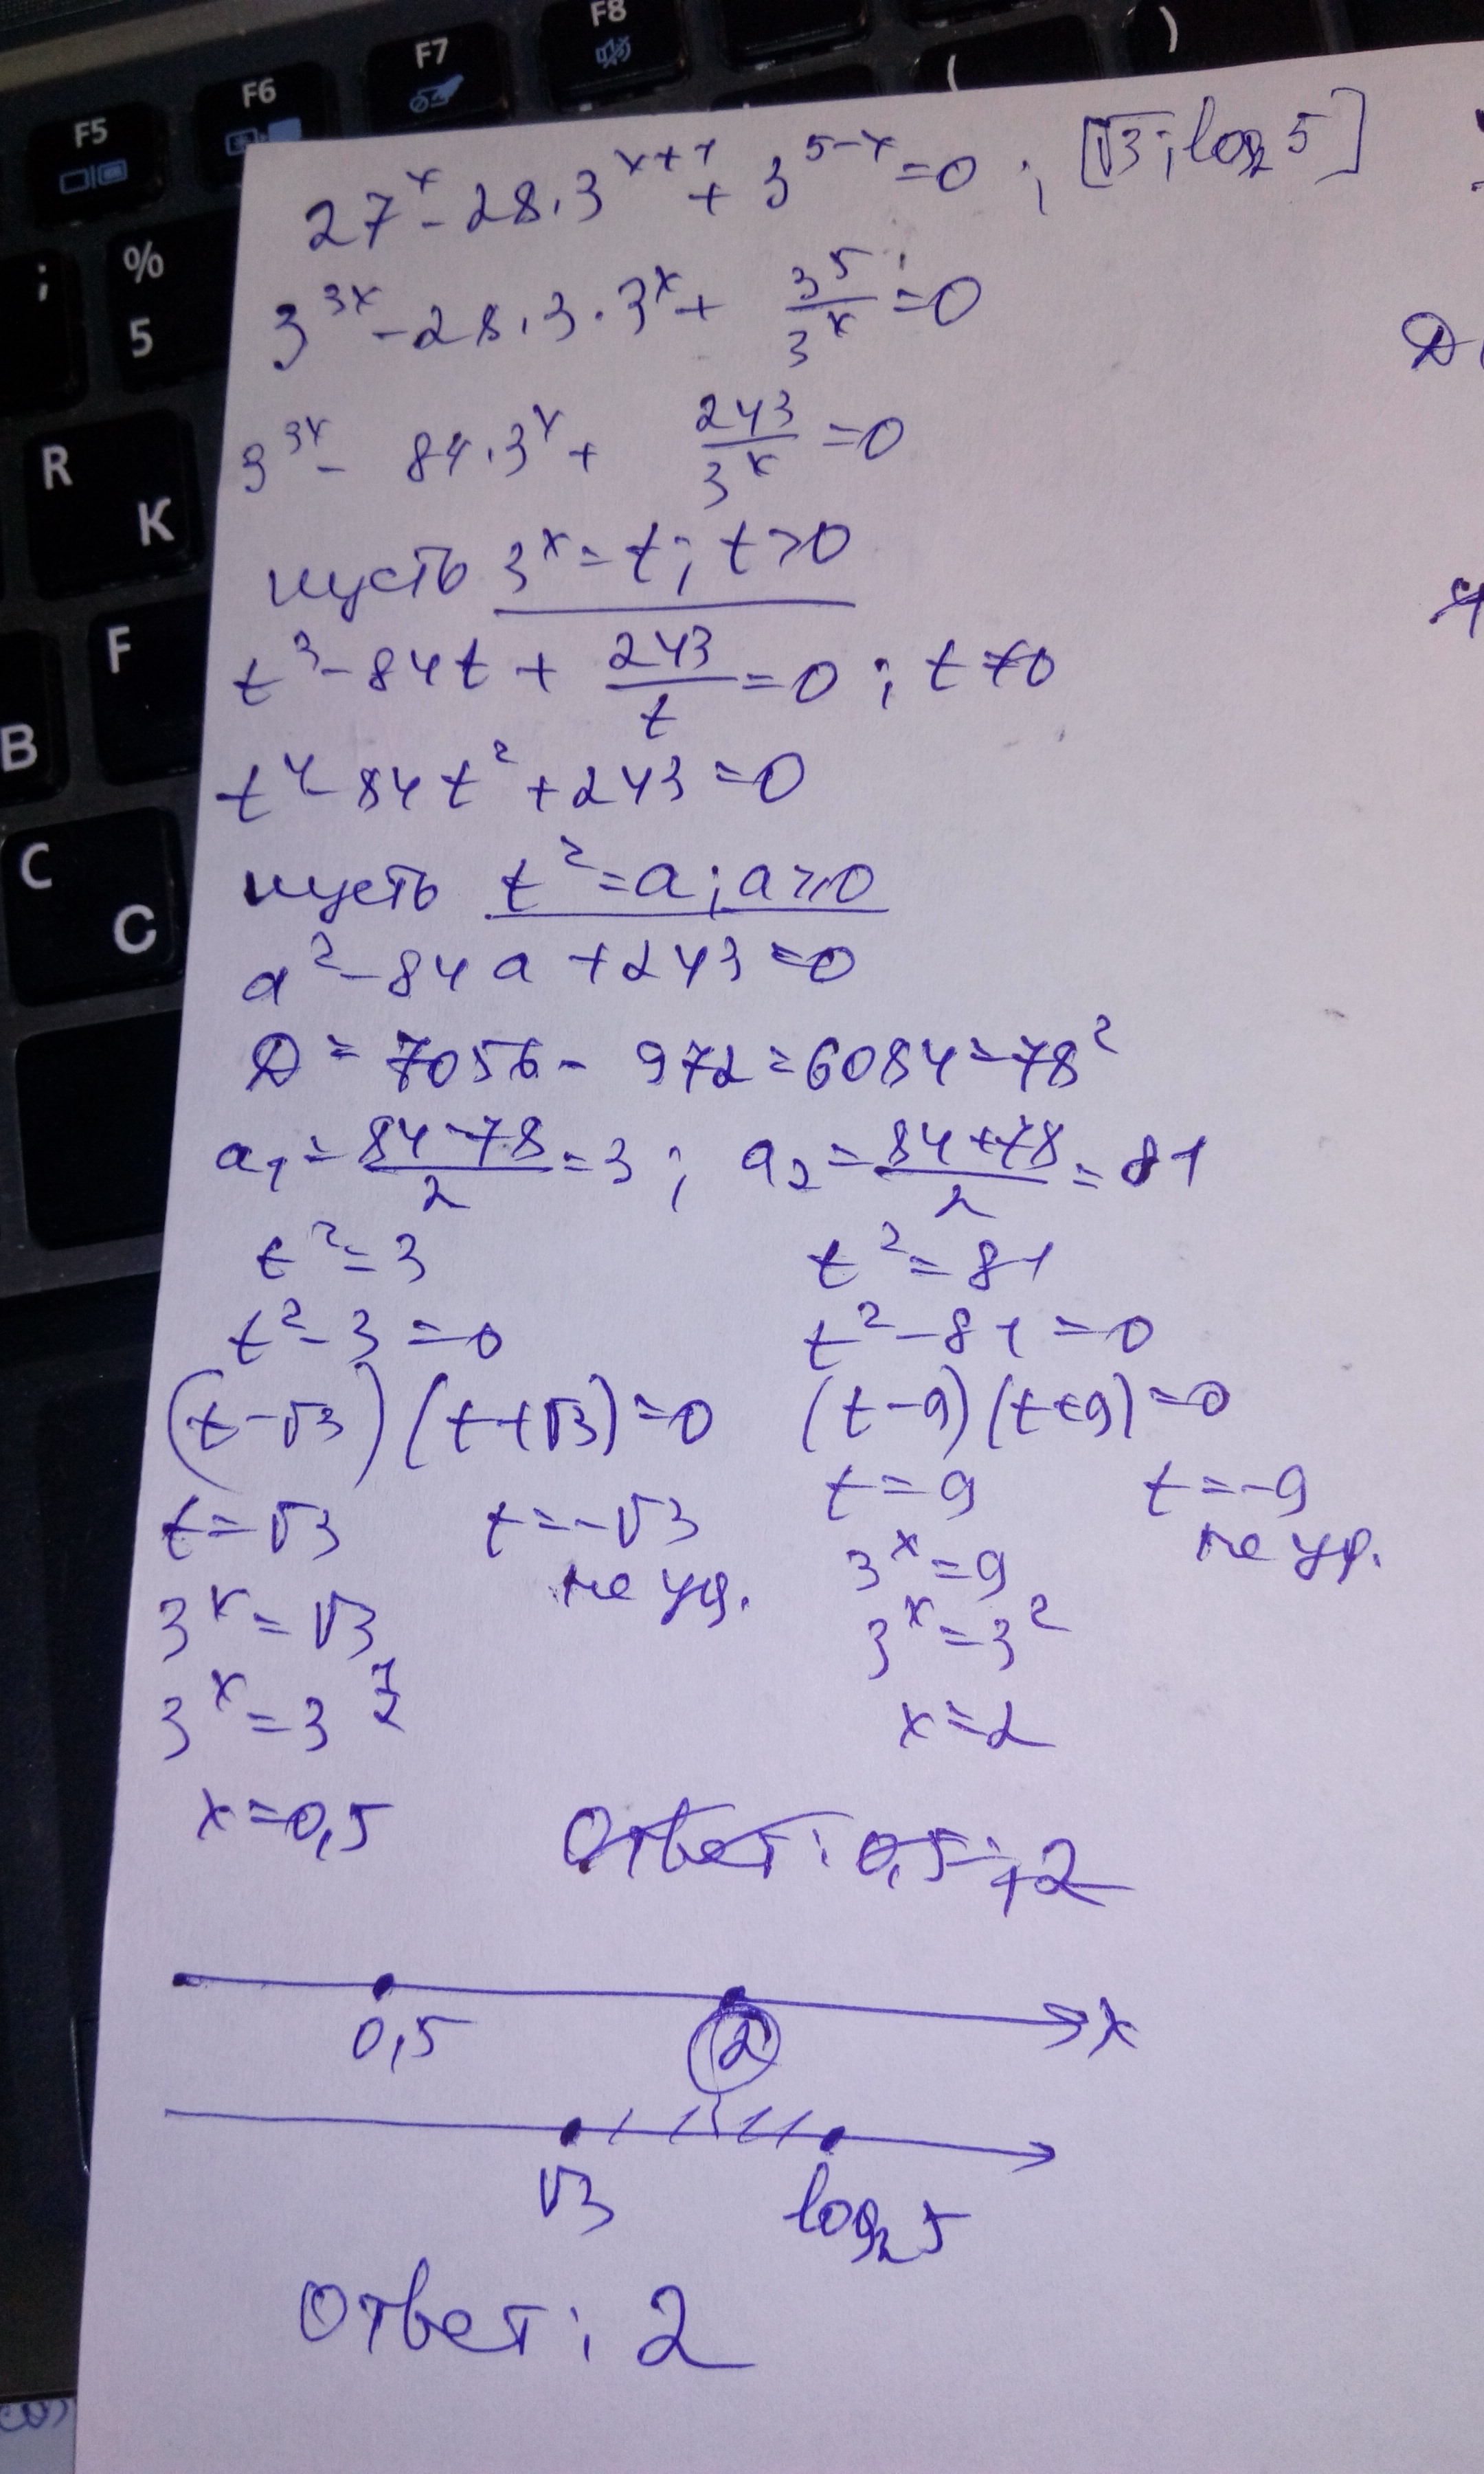 F5 F6 F7 F8
( )
; % 5
R K
F
B
C C
27^x - 28·3^(x+1) + 3^(5-x) = 0 ; [√3; log₂5]
3^(3x) - 28·3·3^x + 3^5/3^x = 0
3^(3x) - 84·3^x + 243/3^x = 0
пусть 3^x = t; t>0
t³ - 84t + 243/t = 0 ; t≠0
t⁴ - 84t² + 243 = 0
пусть t² = a; a≥0
a² - 84a + 243 = 0
D = 7056 - 972 = 6084 = 78²
a₁ = (84-78)/2 = 3 ; a₂ = (84+78)/2 = 81
t² = 3 t² = 81
t² - 3 = 0 t² - 81 = 0
(t-√3)(t+√3) = 0 (t-9)(t+9) = 0
t = √3 t = -√3 t = 9 t = -9
не уд. 3^x = 9 не уд.
3^x = √3 3^x = 3²
3^x = 3^(1/2) x = 2
x = 0,5 Ответ: 0,5; 2
0,5 2 x
√3 log₂5
Ответ: 2